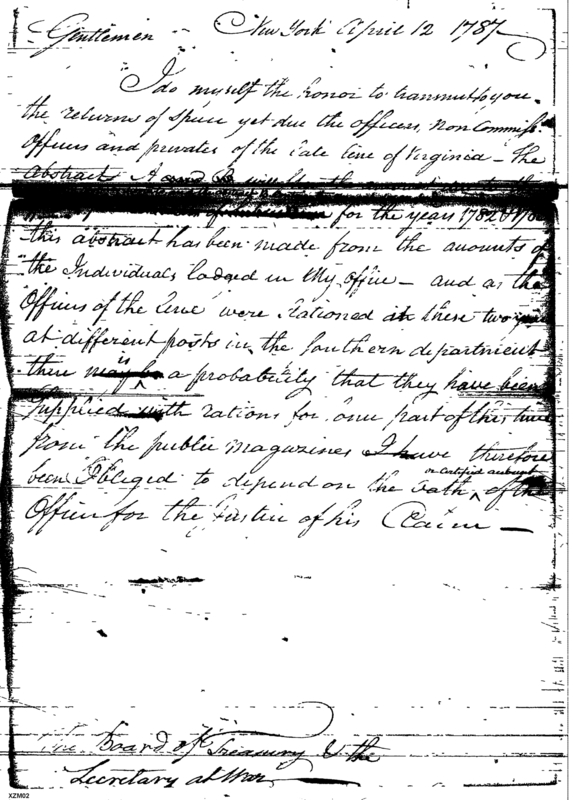 Gentlemen New York April 12 1787
I do myself the honor to transmit to you
the returns of Specie yet due the officers, non Commiss.
Officers and privates of the late line of Virginia – The
Abstracts A and B
for the years 1782 &
this abstract has been made from the amounts of
the Individuals lodged in my office – and as the
Officers of the line were rationed in these two
at different posts in the Southern department
there is a probability that they have been
Supplied with rations for some part of this time
from the public magazines I have therefore
or certified amount
been Obliged to depend on the Oath of the
Officer for the Justice of his Claim –
The Board of Treasury & the
Secretary at War
XZM02